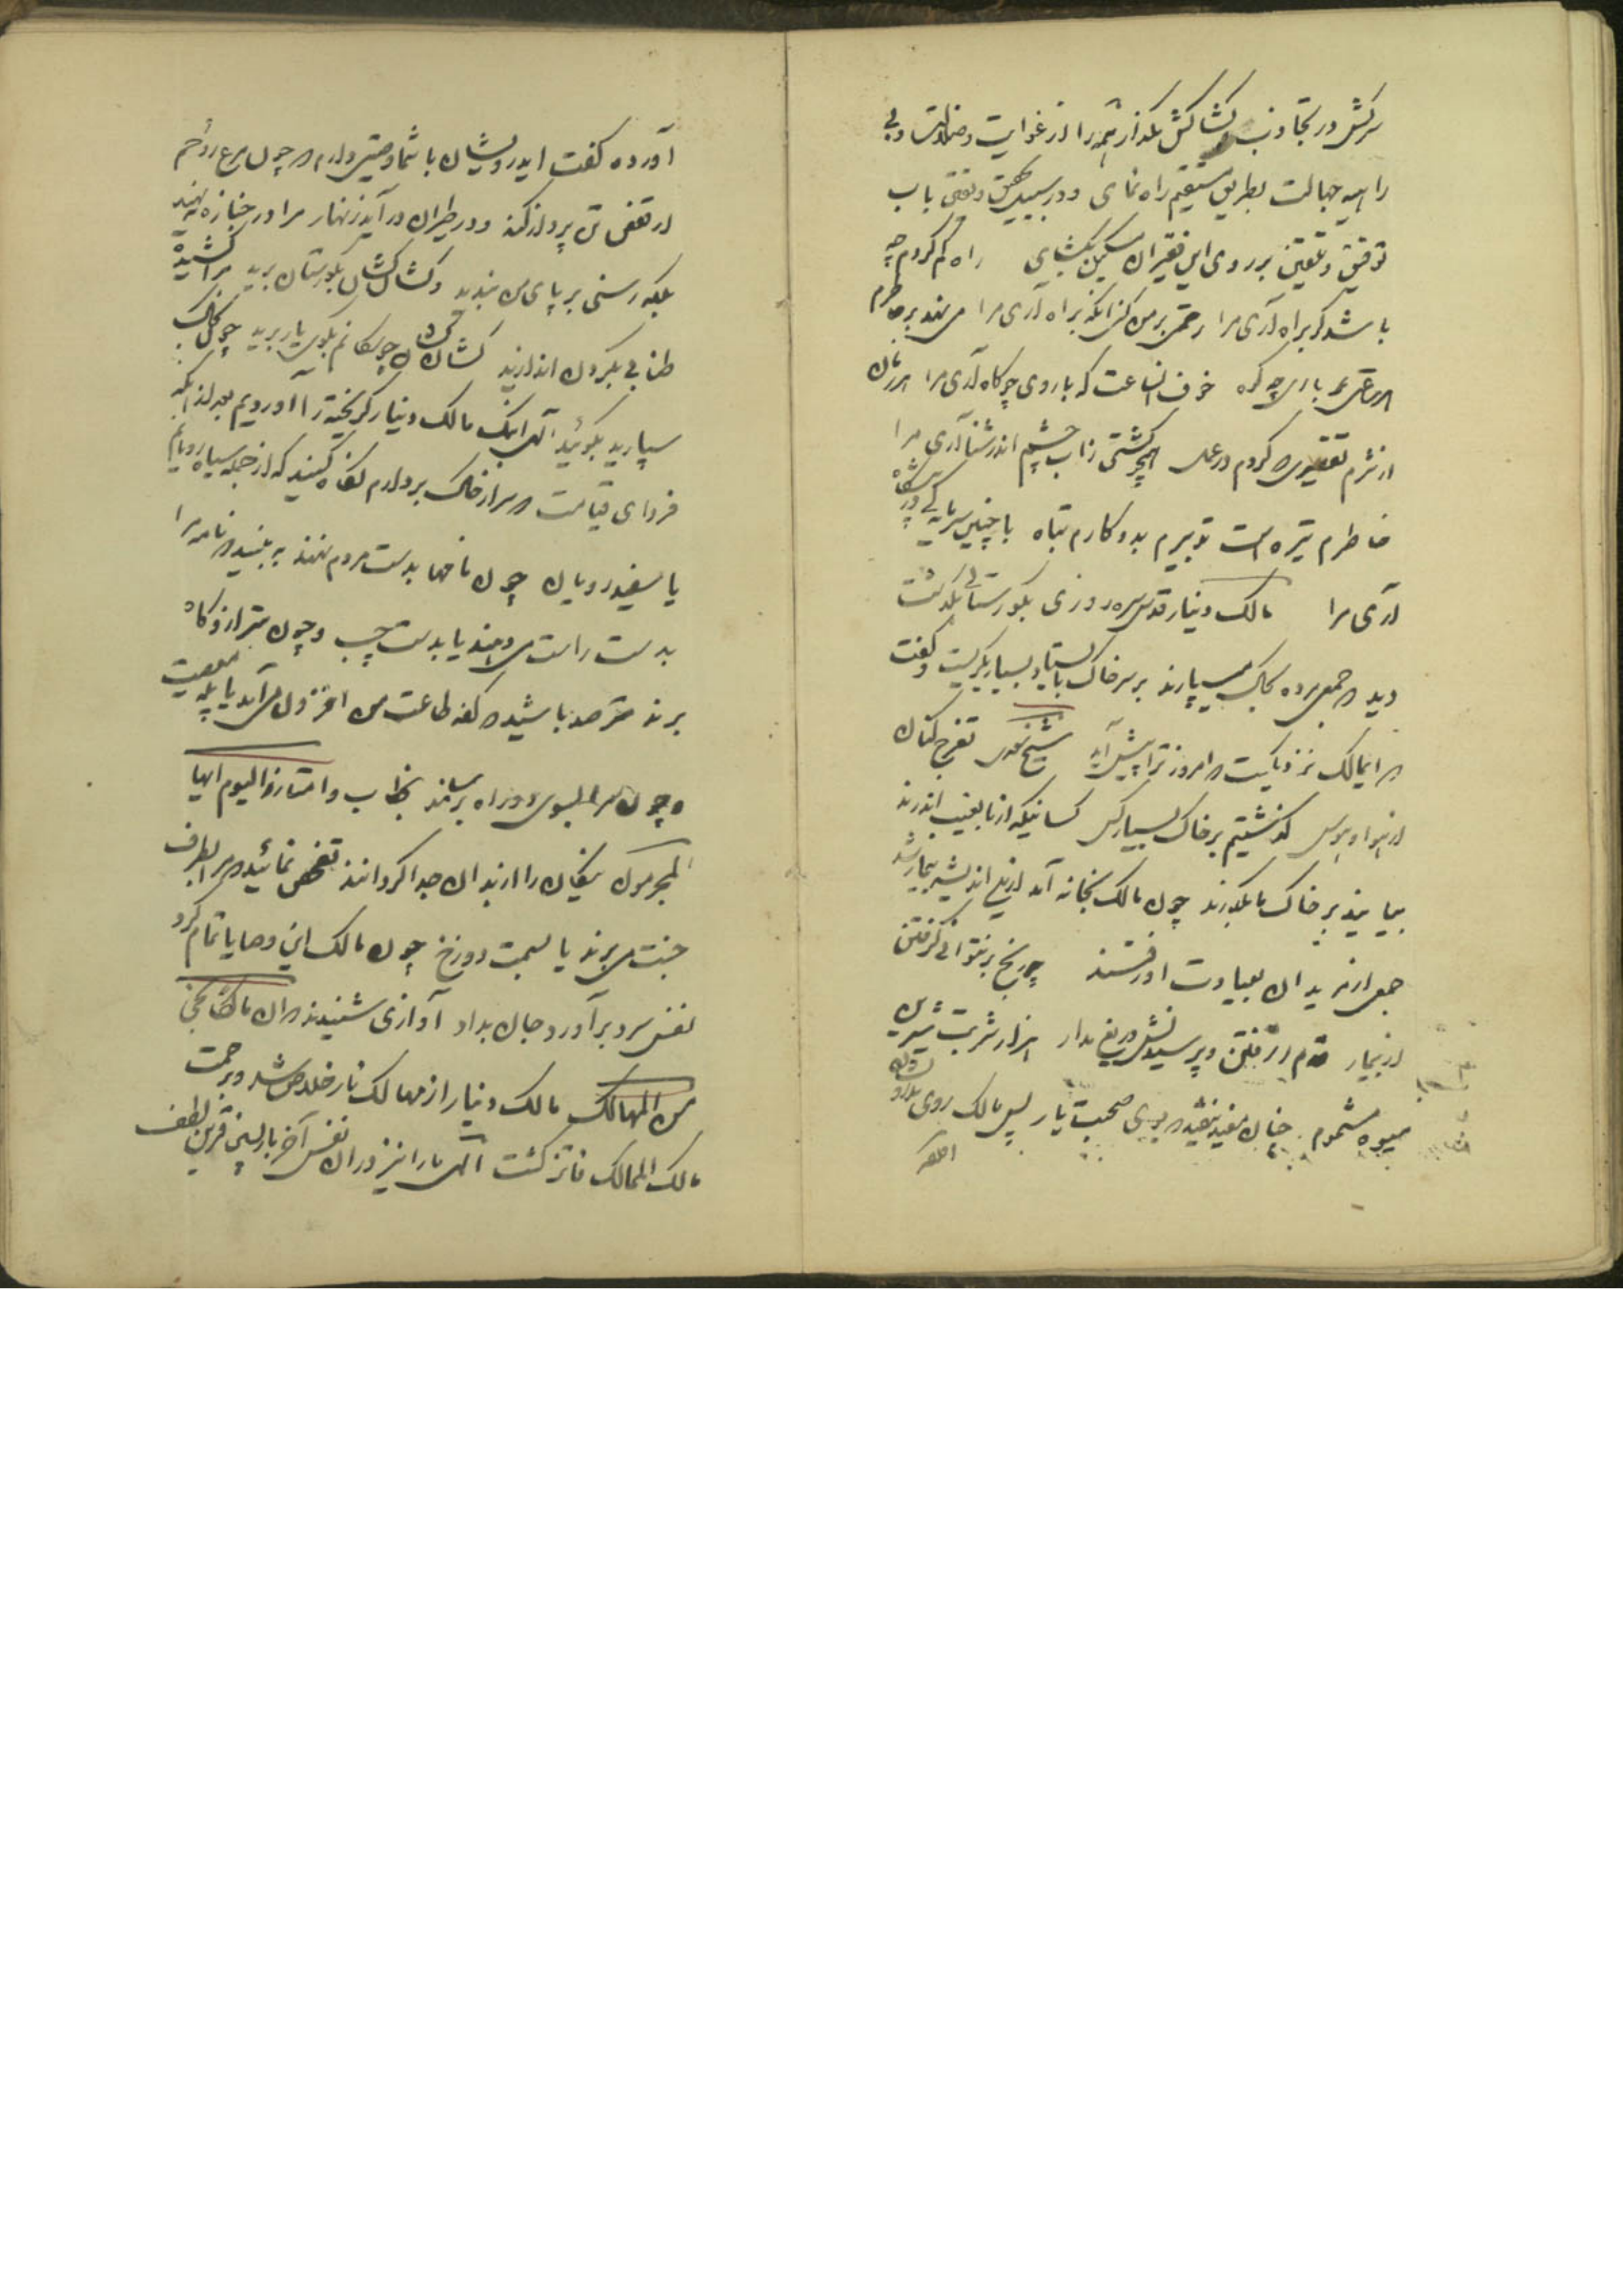 سرکش در تجاذب کشاکش مگذار همه را از غوایت و ضلالت و بی
راهیه جهالت بطریق مستقیم راه نمای و در سبیل تحقیق وفتی باب
توفیق و تلقین بر روی این فقیران مسکین بگشای راه گم کردم چه
باشد گر براه آری مرا رحمتی بر من کنی آنکه براه آری مرا می نهد بر خاطرم
هر ساعتی باری چو کوه خوف آنساعت که با روی چو کاه آری مرا هر زمان
از شرم تقصیری که کردم در عمل همچو کشتی زآب چشم اندر شنا آری مرا
خاطرم تیره است تدبیرم بد و کارم تباه با چنین سرمایه کی در پیشگاه
آری مرا مالک دینار قدس سره روزی بگورستانی بگذشت
دید که جمعی مرده بخاک میسپارند بر سر خاک بایستاد بسیار بگریست و گفت
که ایمالک نزدیکست که امروز ترا پیش آید شیخ سعدی تفرج کنان
از هوا و هوس گذشتیم بر خاک بسیار کس کسانیکه از ما بغیب اندرند
بیایند بر خاک ما بگذرند چون مالک بخانه آمد ازین اندیشه بیمار شد
جمعی از مریدان بعیادت او رفتند چو رنج بر نتوانی گرفتن
از بیمار قدم ز رفتن و پرسیدنش دریغ مدار هزار شربت شیرین
میوه مشموم چنان مفید نیفتد که بوی صحبت یار پس مالک روی بدرویشان
آورده گفت ایدرویشان با شما وصیتی دارم که چون مرغ روحم
از قفس تن پرواز کند و در طیران در آید زنهار مرا در جنازه ننهید
بلکه رسنی بر پای من بندید و کشان کشان بگورستان برید مرا کشیده
طنابی بگردن اندازید کشان کشان چو سگانم بکوی یار برید چون بخاک
سپارید بگوئید الهی اینک مالک دینار گریخته را آوردیم بعد از آنکه
فردای قیامت که سر از خاک بر دارم نگاه کنید که از جمله سیاه رویانم
یا سفید رویان چون نامها بدست مردم نهند به بینید که نامه مرا
بدست راست می دهند یا بدست چپ و چون بترازوگاه
برند مترصد باشید که کفه طاعت من افزون می آید یا پله معصیت
و چون مرا بسوی دو راه برسانند بخطاب وامتازوا الیوم ایها
المجرمون نیکان را از بدان جدا گردانند تفحص نمائید که مرا بطرف
جنت می برند یا بسمت دوزخ چون مالک این وصایا تمام کرد
نفس سرد برآورد و جان بداد آوازی شنیدند که ان مالکا نجی
من المهالک مالک دینار از مهالک نار خلاص شد و برحمت
مالک الممالک فائز گشت الهی ما را نیز در ان نفس آخر بازپسین قرین لطف